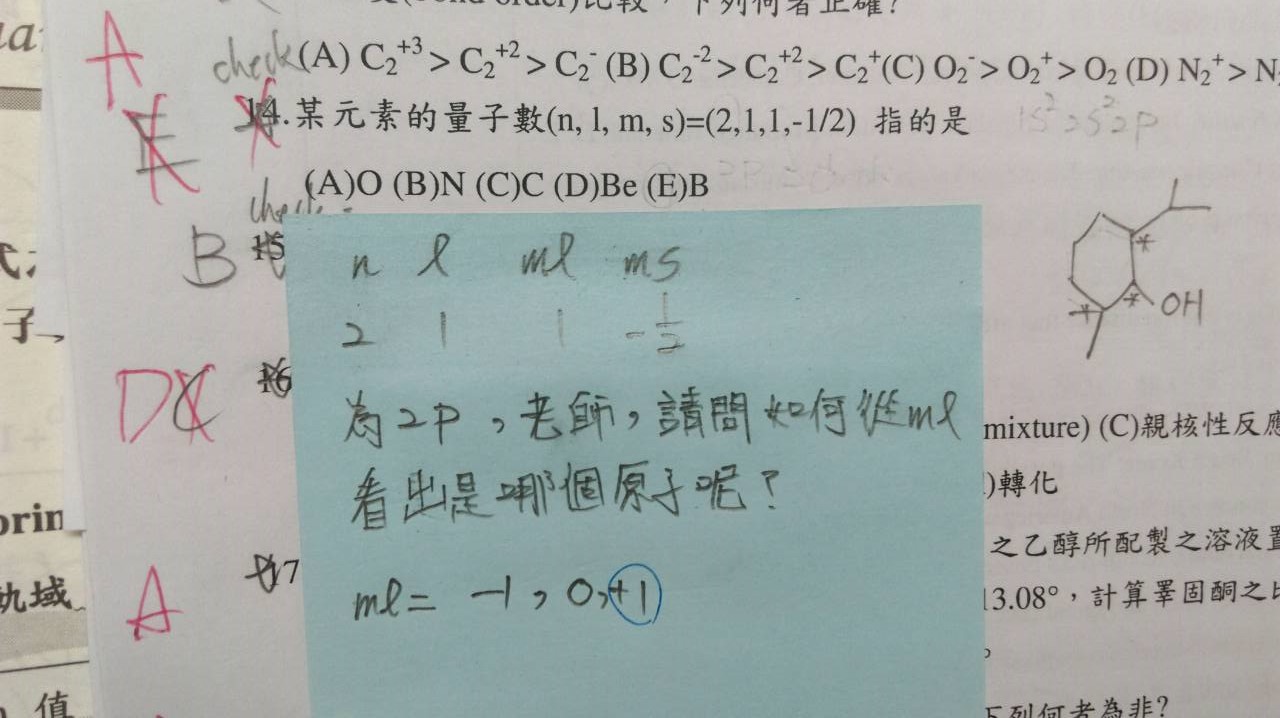 (bond order)比較，下列何者正確?
A
check (A) C₂⁺³ > C₂⁺² > C₂⁻ (B) C₂⁻² > C₂⁺² > C₂⁺(C) O₂⁻ > O₂⁺ > O₂ (D) N₂⁺ > N
E
14.某元素的量子數(n, l, m, s)=(2,1,1,-1/2) 指的是
1s² 2s² 2p
(A)O (B)N (C)C (D)Be (E)B
check
B 15
n l ml ms
2 1 1 -1/2
OH
DC 16
為2p，老師，請問如何從ml
看出是哪個原子呢？
mixture) (C)親核性反應
)轉化
之乙醇所配製之溶液置
A 17
ml= -1，0，+1
13.08°，計算睪固酮之比
下列何者為非?
子、
orin
軌域
值